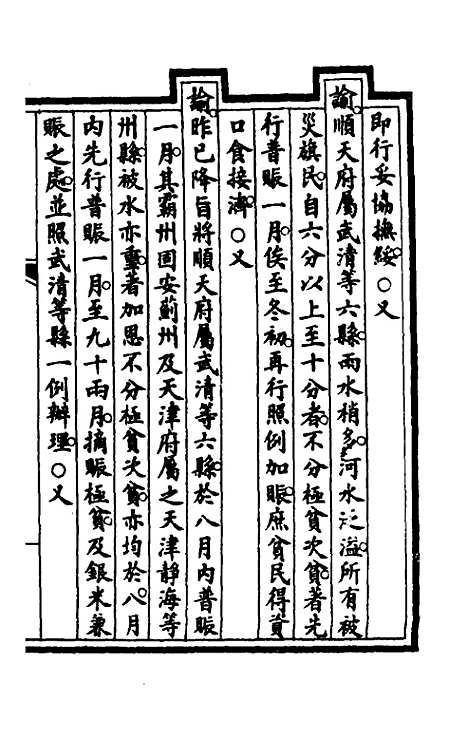 即行妥協撫綏○又
諭順天府屬武清等六縣雨水稍多河水泛溢所有被
災旗民自六分以上至十分者不分極貧次貧著先
行普賑一月俟至冬初再行照例加賑庶貧民得資
口食接濟○又
諭昨已降旨將順天府屬武清等六縣於八月內普賑
一月其霸州固安薊州及天津府屬之天津靜海等
州縣被水亦重著加恩不分極貧次貧亦均於八月
內先行普賑一月至九十兩月摘賑極貧及銀米兼
賑之處並照武清等縣一例辦理○又